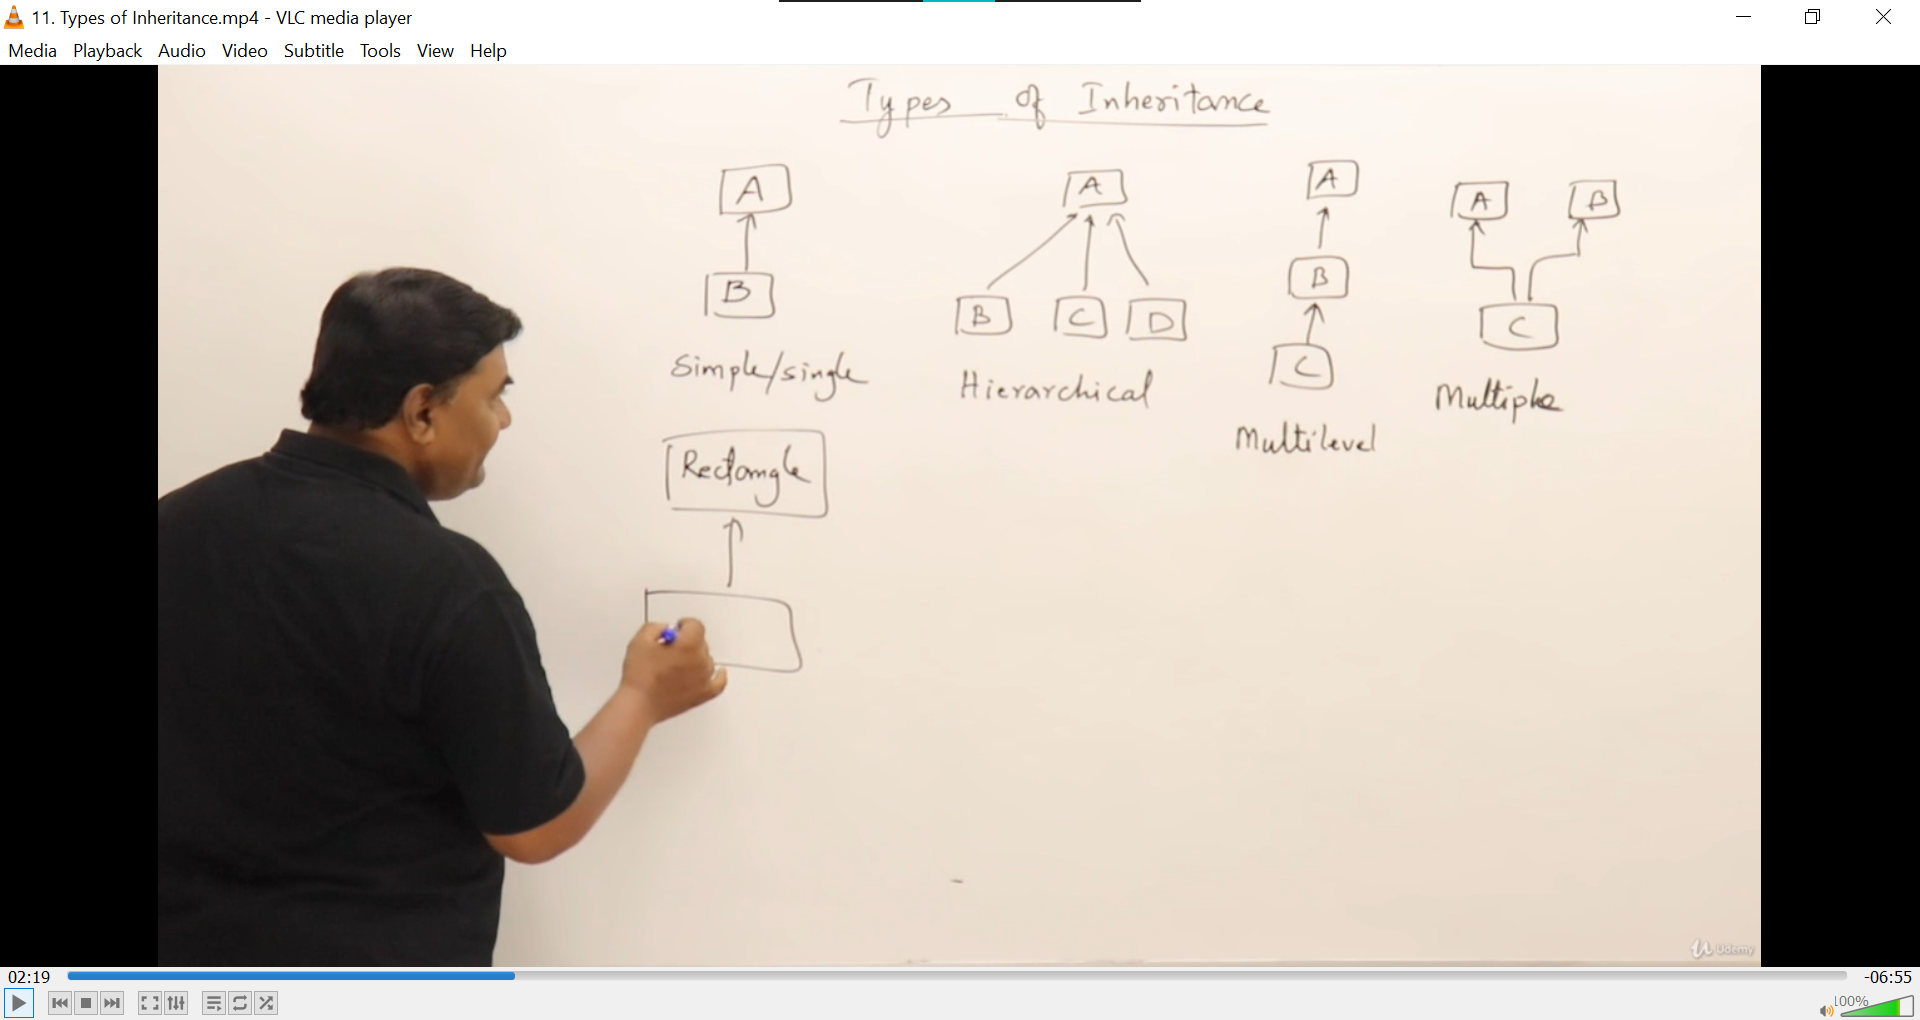 11. Types of Inheritance.mp4 - VLC media player
Media Playback Audio Video Subtitle Tools View Help
Types of Inheritance
A
B
Simple/single
A
B C D
Hierarchical
A
B
C
Multilevel
A B
C
Multiple
Rectangle
Udemy
02:19
-06:55
100%